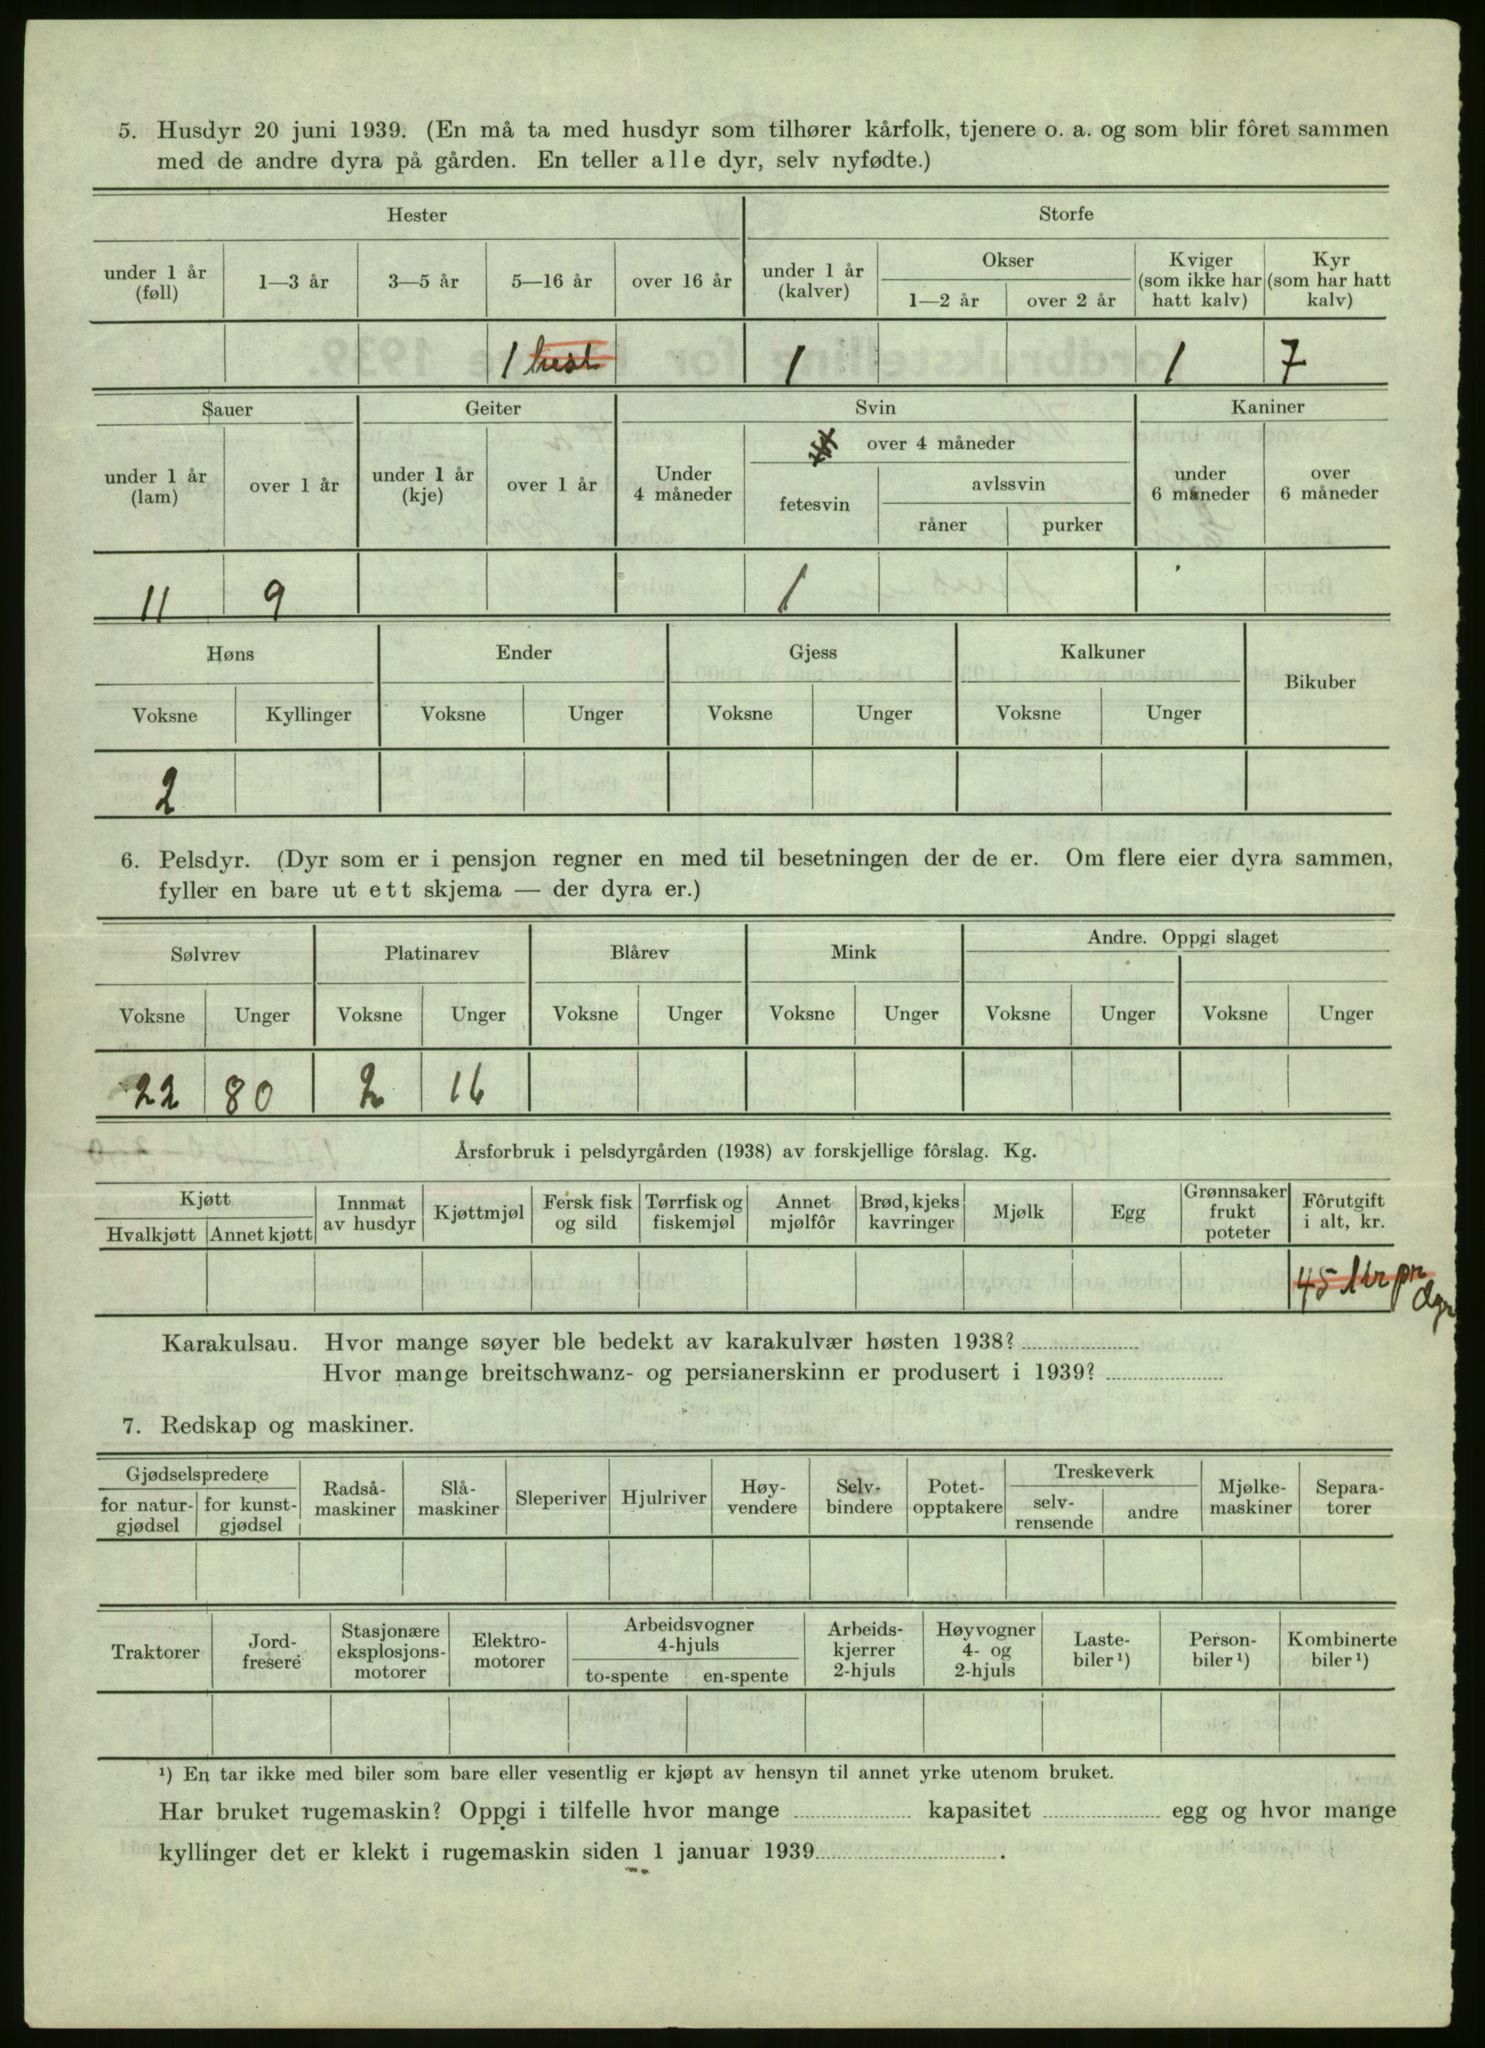 5. Husdyr 20 juni 1939. (En må ta med husdyr som tilhører kårfolk, tjenere o. a. og som blir fôret sammen
med de andre dyra på gården. En teller alle dyr, selv nyfødte.)
Hester Storfe
under 1 år (føll) 1—3 år 3—5 år 5—16 år over 16 år under 1 år (kalver) Okser 1—2 år over 2 år Kviger (som ikke har hatt kalv) Kyr (som har hatt kalv)
1 hest 1 1 7
Sauer Geiter Svin Kaniner
under 1 år (lam) over 1 år under 1 år (kje) over 1 år Under 4 måneder over 4 måneder fetesvin avlssvin råner purker under 6 måneder over 6 måneder
11 9 1
Høns Ender Gjess Kalkuner Bikuber
Voksne Kyllinger Voksne Unger Voksne Unger Voksne Unger
2
6. Pelsdyr. (Dyr som er i pensjon regner en med til besetningen der de er. Om flere eier dyra sammen,
fyller en bare ut ett skjema — der dyra er.)
Sølvrev Platinarev Blårev Mink Andre. Oppgi slaget
Voksne Unger Voksne Unger Voksne Unger Voksne Unger Voksne Unger Voksne Unger
22 80 2 16
Årsforbruk i pelsdyrgården (1938) av forskjellige fôrslag. Kg.
Kjøtt Hvalkjøtt Annet kjøtt Innmat av husdyr Kjøttmjøl Fersk fisk og sild Tørrfisk og fiskemjøl Annet mjølfôr Brød, kjeks kavringer Mjølk Egg Grønnsaker frukt poteter Fôrutgift i alt, kr.
45 kr pr
dyr
Karakulsau. Hvor mange søyer ble bedekt av karakulvær høsten 1938?
Hvor mange breitschwanz- og persianerskinn er produsert i 1939?
7. Redskap og maskiner.
Gjødselspredere for naturgjødsel for kunstgjødsel Radsåmaskiner Slåmaskiner Sleperiver Hjulriver Høyvendere Selvbindere Potetopptakere Treskeverk selvrensende andre Mjølkemaskiner Separatorer
Traktorer Jordfresere Stasjonære eksplosjonsmotorer Elektromotorer Arbeidsvogner 4-hjuls to-spente en-spente Arbeidskjerrer 2-hjuls Høyvogner 4- og 2-hjuls Lastebiler ¹) Personbiler ¹) Kombinerte biler ¹)
¹) En tar ikke med biler som bare eller vesentlig er kjøpt av hensyn til annet yrke utenom bruket.
Har bruket rugemaskin? Oppgi i tilfelle hvor mange kapasitet egg og hvor mange
kyllinger det er klekt i rugemaskin siden 1 januar 1939 .